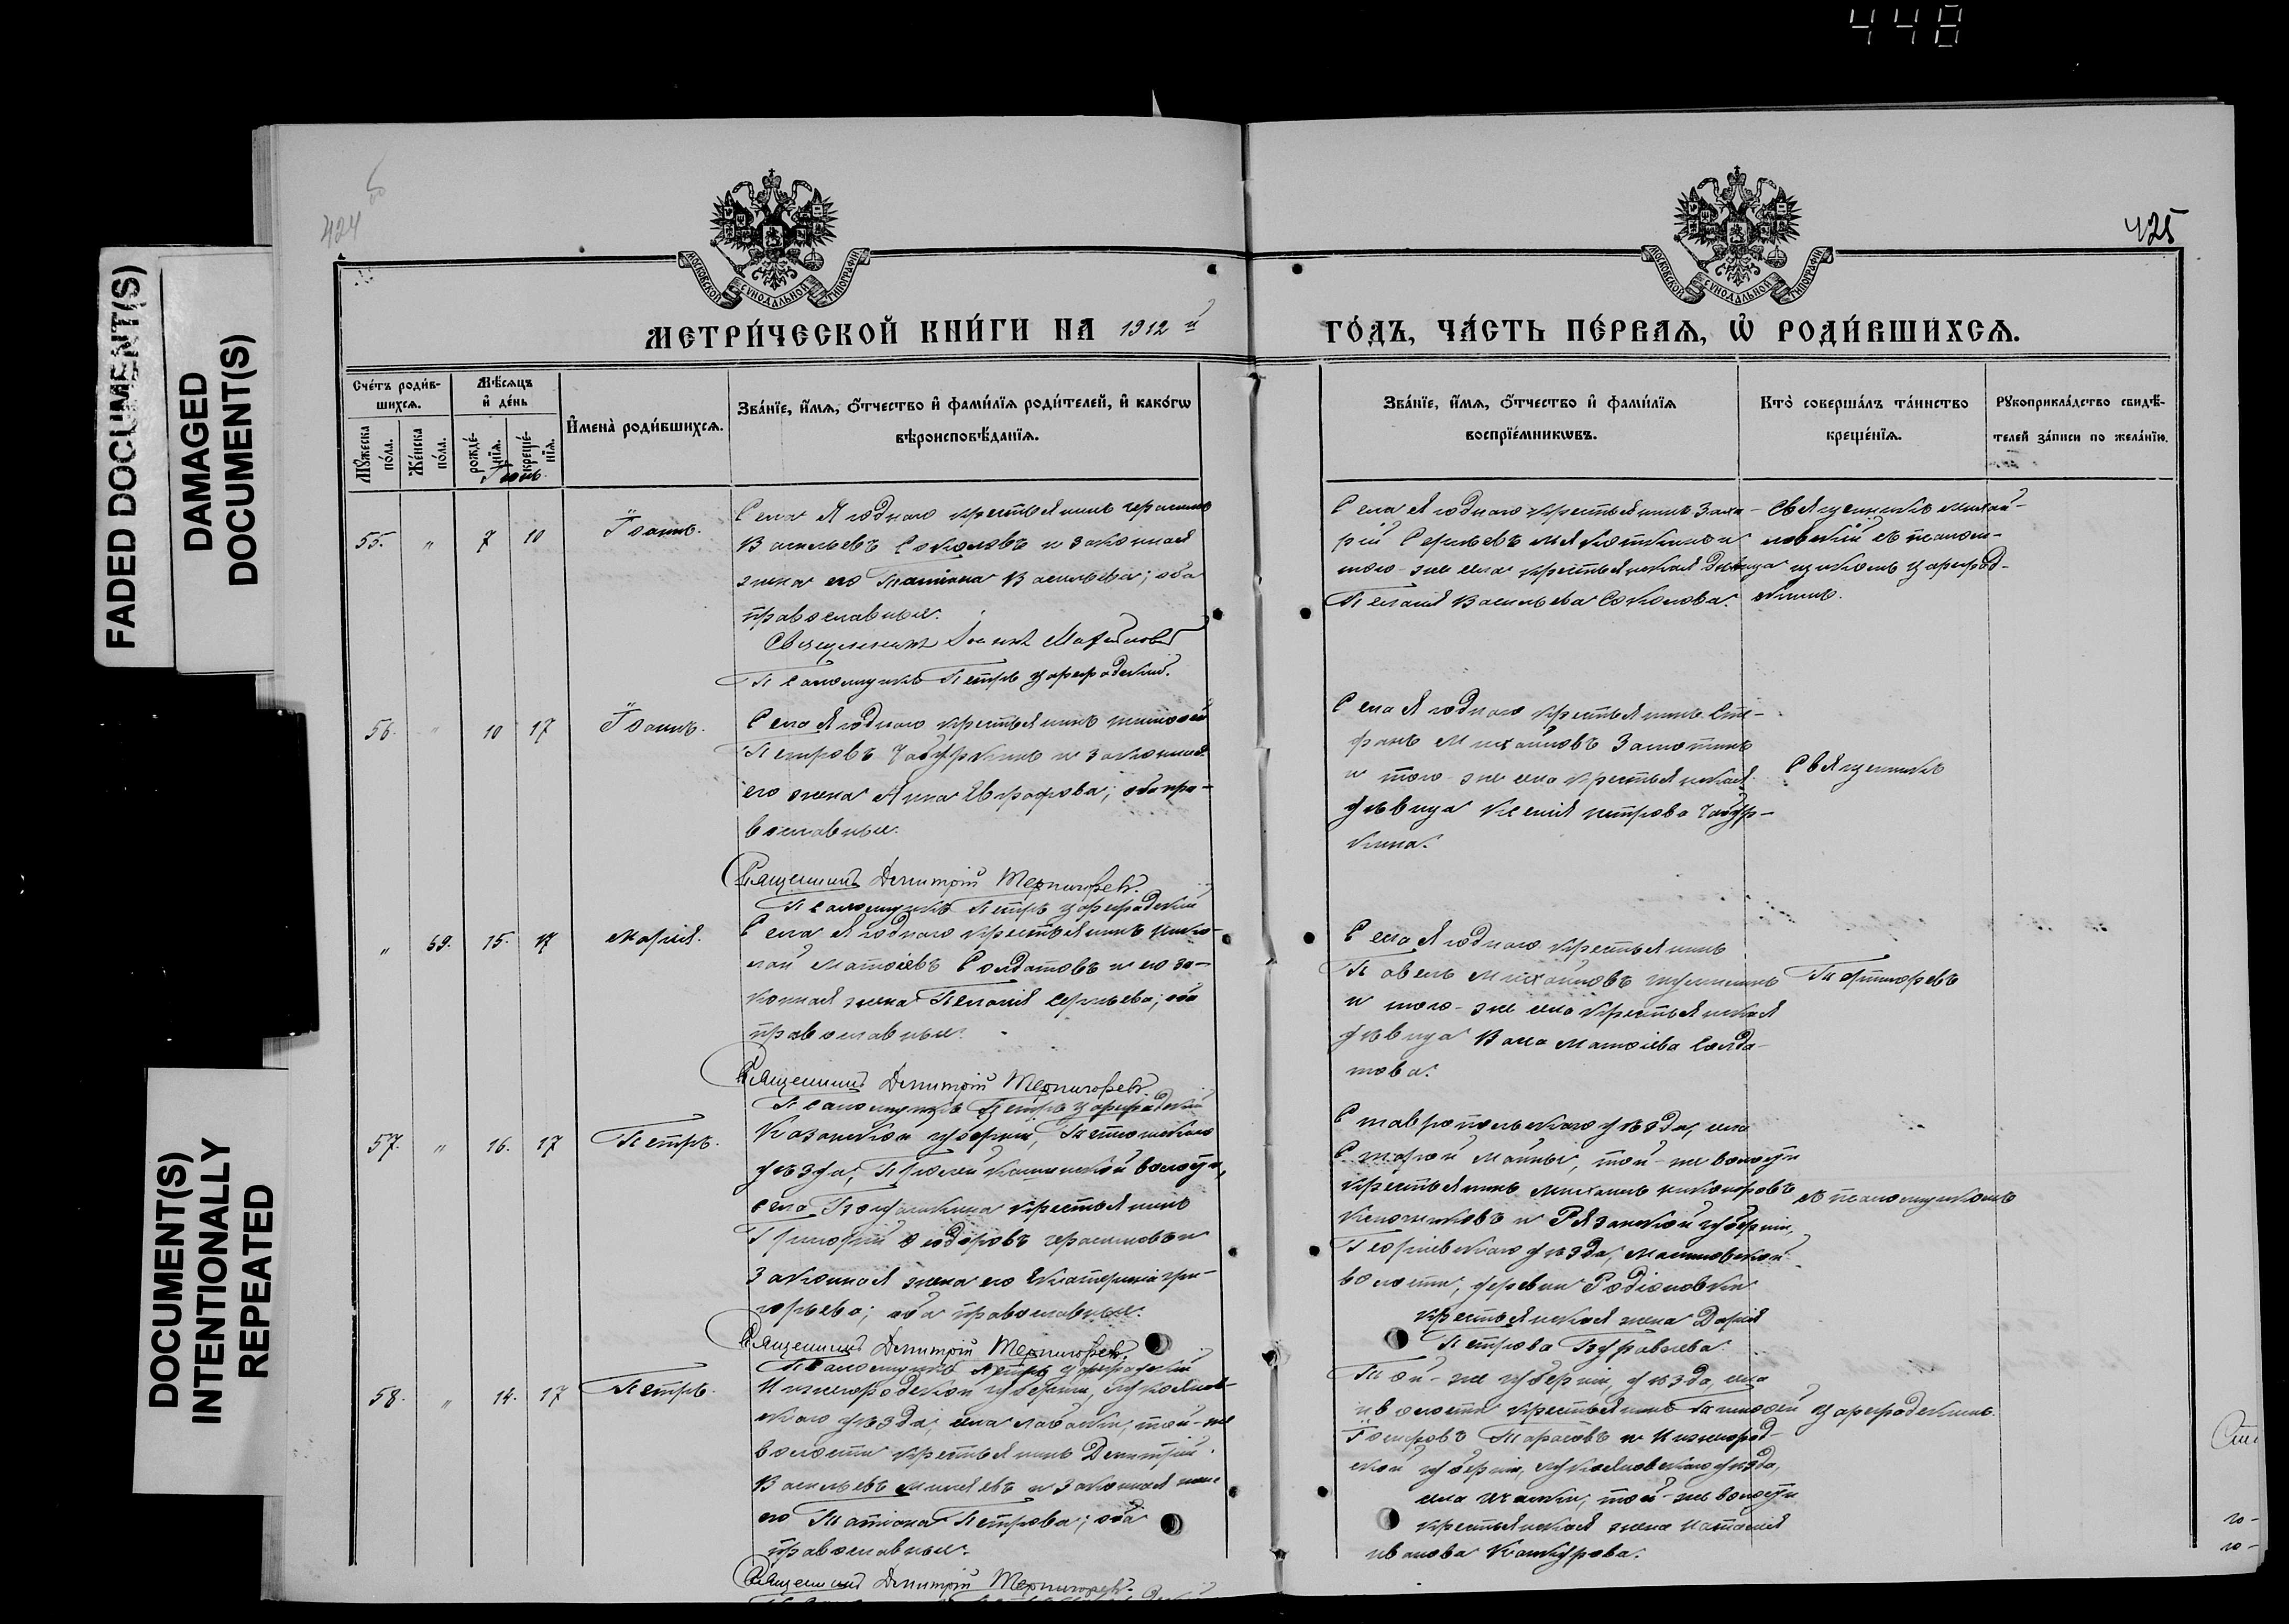 448
FADED DOCUMENT(S)
DAMAGED
DOCUMENT(S)
DOCUMENT(S)
INTENTIONALLY
REPEATED
424
425
МОСКОВСКОЙ СѴНОДАЛЬНОЙ ТИПОГРАФІИ
МОСКОВСКОЙ СѴНОДАЛЬНОЙ ТИПОГРАФІИ
МЕТРИ́ЧЕСКОЙ КНИ́ГИ НА 1912 й
ГО́ДЪ, ЧА́СТЬ ПЕ́РВАЯ, Ѡ҆ РОДИ́ВШИХСЯ.
Сче́тъ роди́в-
шихся.
Мꙋ́жеска по́ла.
Же́нска по́ла.
Мѣ́сяцъ и҆ де́нь
рожде́-нїя.
креще́-нїя.
И҆мена̀ роди́вшихся.
Зва́нїе, и҆́мя, ѻ҆́тчество и҆ фами́лїя роди́телей, и҆ како́гѡ
вѣроисповѣ́данїя.
Зва́нїе, и҆́мя, ѻ҆́тчество и҆ фами́лїя
воспрїе́мникѡвъ.
Кто̀ соверша́лъ та́инство
креще́нїя.
Рꙋкоприкла́дство свидѣ́-
телей за́писи по жела́нїю.
55. " 7 10 Іоаннъ.
Села Ягоднаго крестьянинъ Герасимъ
Васильевъ Соколовъ и законная
жена его Татіана Васильева; оба
православные.
Священникъ Михайлов
Псаломщикъ Петръ Цареградскій.
Села Ягоднаго крестьянинъ Заха-
рій Сергѣевъ и
того-же села крестьянская дѣвица
Пелагія Васильева Соколова.
Священникъ Михай-
ловскій съ псалом-
щикомъ Цареград-
скимъ.
56. " 10 17 Іоаннъ.
Села Ягоднаго крестьянинъ Тимофей
Петровъ Чабуркинъ и законная
его жена Анна Евграфова; оба пра-
вославные.
Священникъ Димитрій Терпигоревъ.
Псаломщикъ Петръ Цареградскій
Села Ягоднаго крестьянинъ Сте-
фанъ Михайловъ Замотинъ
и того-же села крестьянская
дѣвица Ксенія Петрова Чабур-
кина.
Священникъ
" 59. 15. 17 Марія.
Села Ягоднаго крестьянинъ Нико-
лай Матвіевъ Солдатовъ и его за-
конная жена Пелагія Сергѣева; оба
православные.
Священникъ Димитрій Терпигоревъ.
Псаломщикъ Петръ Цареградскій
Села Ягоднаго крестьянинъ
Павелъ Михайловъ
и того-же села крестьянская
дѣвица Васса Матвіева Солда-
това.
Терпигоревъ
57. " 16. 17 Петръ.
Казанской губерніи, Тетюшскаго
уѣзда, волости,
села крестьянинъ
Григорій Ѳеодоровъ Герасимовъ и
законная жена его Екатерина Гри-
горьева; оба православные.
Священникъ Димитрій Терпигоревъ.
Псаломщикъ Петръ Цареградскій
Ставропольскаго уѣзда, села
Старой Майны, той-же волости
крестьянинъ Михаилъ Никоноровъ
и Рязанской губерніи,
уѣзда,
волости, деревни Родіоновки
крестьянская жена Дарія
Петрова Журавлева.
съ псаломщикомъ
58. " 14. 17 Петръ.
Нижегородской губерніи, Лукоянов-
скаго уѣзда, села той-же
волости крестьянинъ Димитрій
Васильевъ и законная жена
его Татіана Петрова; оба
православные.
Священникъ Димитрій Терпигоревъ.
Той-же губерніи, уѣзда, села
и волости крестьянинъ Тимофей
Тарасовъ и Нижегород-
ской губерніи, Лукояновскаго уѣзда,
села той-же волости
крестьянская жена Наталія
Иванова
Цареградскимъ.